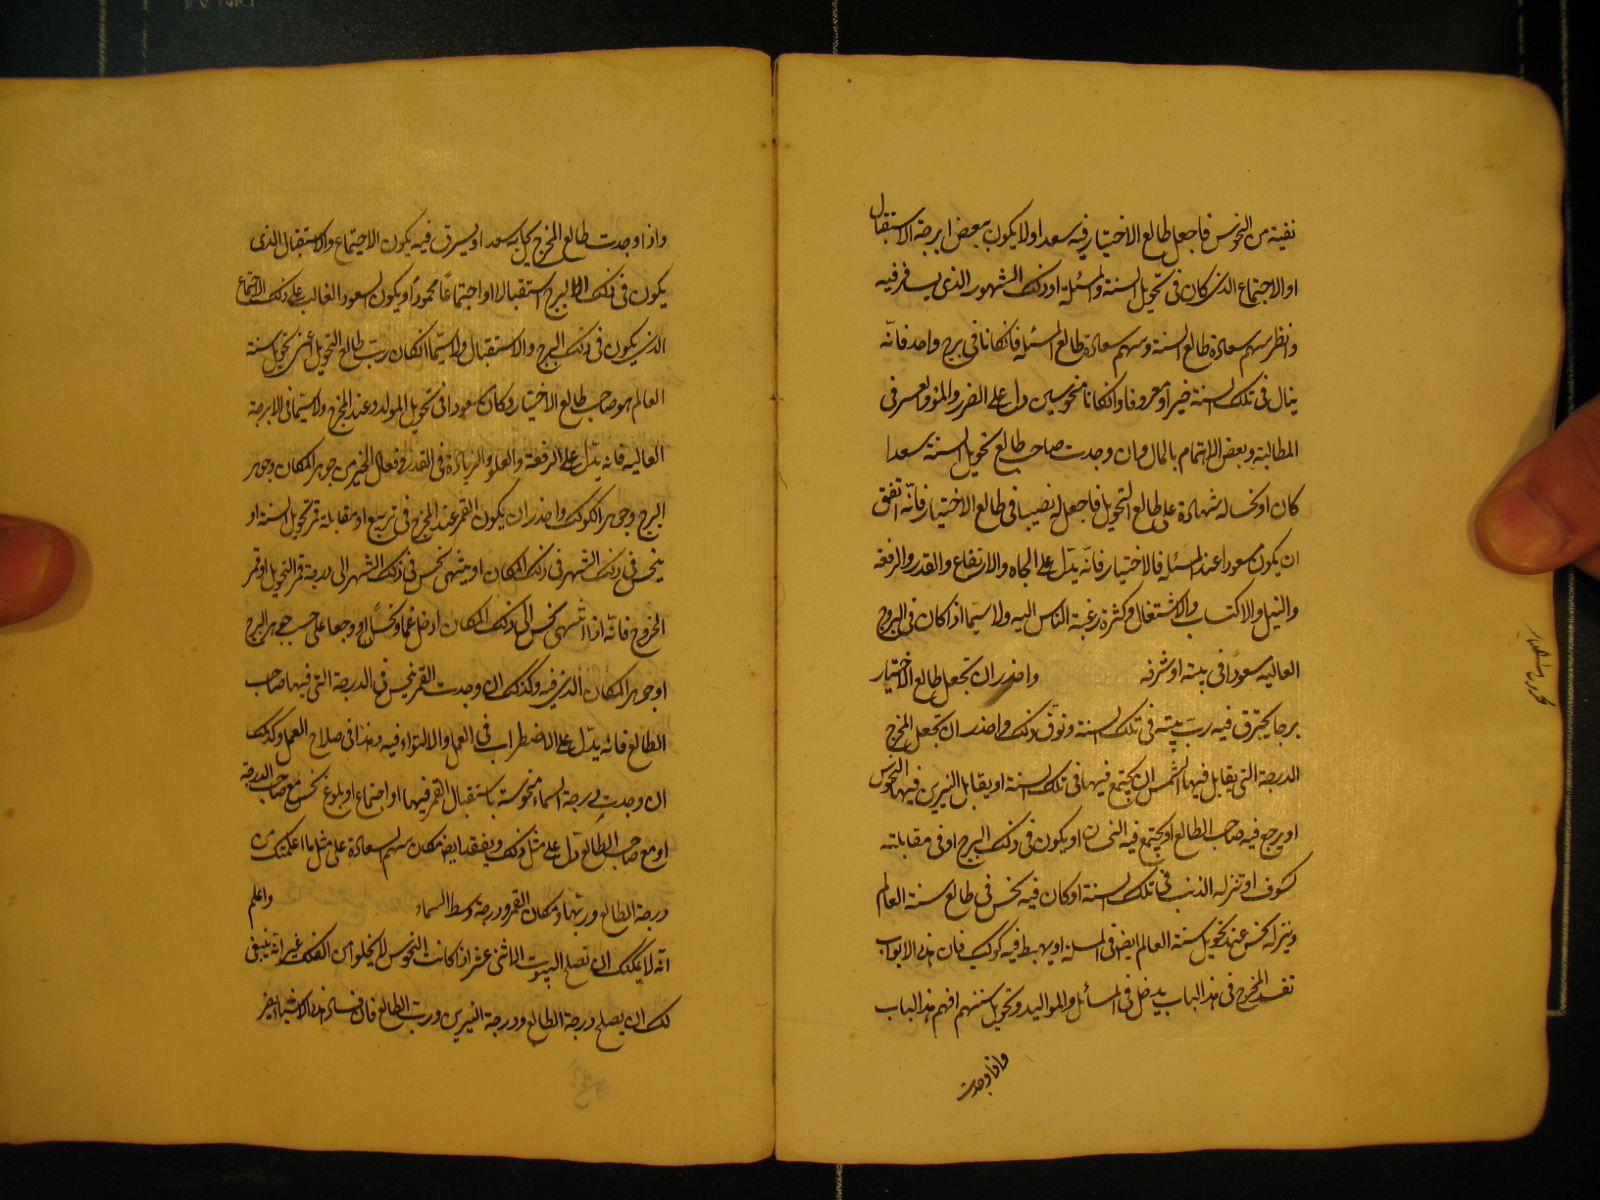 نقية من النحوس فاجعل طالع الاختيار فيه سعد اولا يكون بعض ابرجة الاستقبال
او الاجتماع الذي كان في تحويل السنة والمسئلة او ذلك الشهور الذي يسافر فيه
وانظر سهم سعادة طالع السنة وسهم سعادة طالع المسئلة فان كانا في برج واحد فانّه
ينال في تلك السنة خيرا ومعروفا وان كانا منحوسين دل على الضرر والمؤ في
المطالبة وبعض الاهتمام بالمال وان وجدت صاحب طالع تحويل السنة سعدا
كان او نحسا له شهادة على طالع التحويل فاجعل له نصيبا في طالع الاختيار فانّه اتفق
ان يكون مسعودا عند المسئلة فالاختيار فانّه يدّل على الجاه والارتفاع والقدر والرفعة
والنيل والاكتساب والاشتغال وكثرة رغبة الناس اليه ولا سيّما اذا كان في البروج
العاليه مسعودًا في بيته او شرفه واحذر ان تجعل طالع الاختيار
برجا يحترق فيه ربّ بيته في تلك السنة وتوقّ ذلك واحذر ان تجعل المخرج
الدرجة التي يقابل فيها الشمس ان يجتمع فيها في تلك السنة او يقابل النيرين فيها النحوس
او يرجع فيه صاحب الطالع او يجتمع فيه النحسان او يكون في ذلك البرج او في مقابلته
كسوف او تنزله الذنب في تلك السنة او كان فيه نحس في طالع سنة العالم
وينزله نحس عند تحويل سنة العالم ايضا في السنة او يهبط فيه كوكب فان هذه الابواب
تفسد المخرج في هذا الباب يدخل في المسائل والمواليد وتحويل سنتهم افهم هذا الباب
واذا وجدت
واذا وجدت طالع المخرج يحل به سعد او يشرق فيه يكون الاجتماع والاستقبال الذي
يكون في ذلك البرج استقبالا او اجتماعًا محمودًا ويكون السعود الغالب على ذلك الاجتماع
الذي يكون في ذلك البرج والاستقبال ولا سيّما ان كان ربّ طالع التحويل أعني تحويل سنة
العالم هو صاحب طالع الاختيار وكان مسعودا في تحويل المولد وعند المخرج ولا سيّما في الابرجة
العاليه فانه يدّل على الرفعة والعلو والزيادة في القدر وفعال الخير من جوهر المكان وجوهر
البرج وجوهر الكوكب واحذر ان يكون القمر عند المخرج في تربيع او مقابلة قمر تحويل السنة او
ينحس في ذلك الشهر في ذلك المكان او ينتهى نحس في ذلك الشهر الى درجة قمر التحويل او قمر
الخروج فانّه اذا انتهى نحس الى ذلك المكان ادخل غما ونحسًا او وجعا على حسب جوهر البرج
او جوهر المكان الذي فيه وكذلك ان وجدت القمر نحس في الدرجة التي فيها صاحب
الطالع فانه يدّل على الاضطراب في العمل والالتواء فيه وهذا في صلاح العمل وكذلك
ان وجدت درجة السماء منحوسة باستقبال القمر فيها او اجتماع او بلوغ نحس مع صاحب الدرجة
او مع صاحب الطالع دل على مثل ذلك ويفقد ايضا مكان سهم السعادة على مثل ما اعلمتك من
درجة الطالع وربّها ومكان القمر ودرجة وسط السماء واعلم
انّه لا يمكنك ان تصلح البيوت الاثني عشر اذا كانت النحوس لا يخلوا من الفلك غير انّه ينبغي
لك ان يصلح درجة الطالع ودرجة النيرين ورب الطالع فان فساد هذه الاشياء